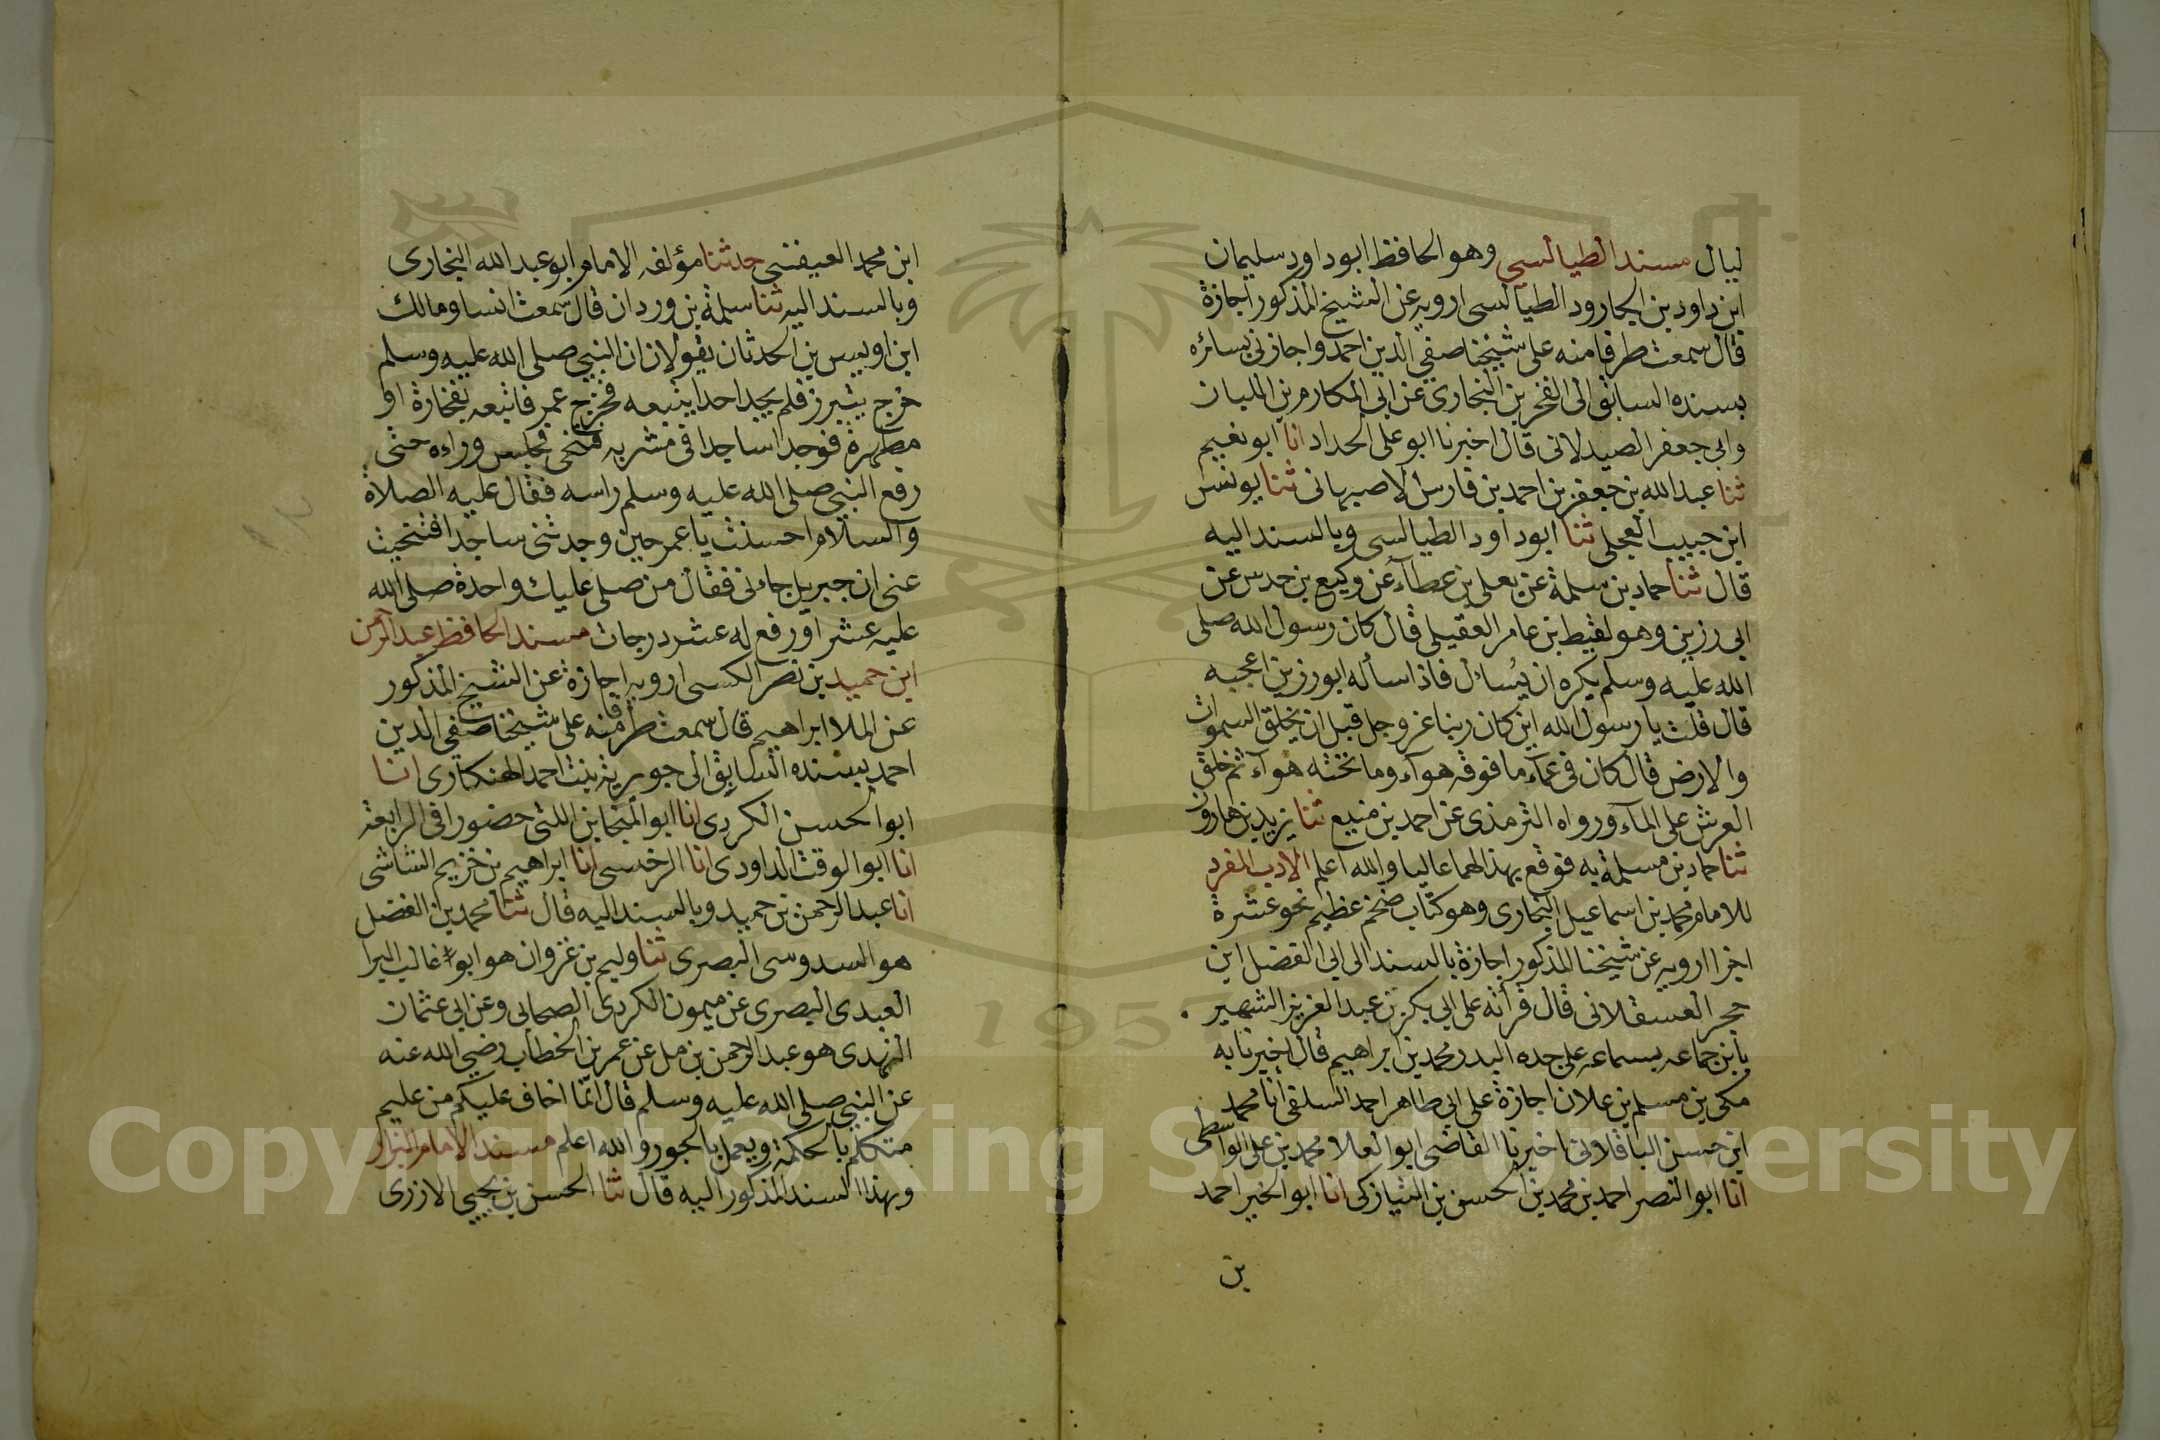 ليال مسند الطيالسي وهو الحافظ ابو داود سليمان
ابن داود بن الجارود الطيالسي ارويه عن الشيخ المذكور اجازة
قال سمعت طرفا منه على شيخنا صفي الدين احمد واجازني بسائره
بسنده السابق الى الفخر بن البخاري عن ابي المكارم بن اللبان
وابي جعفر الصيدلاني قال اخبرنا ابو على الحداد انا ابو نعيم
ثنا عبد الله بن جعفر بن احمد بن فارس الاصبهاني ثنا يونس
ابن حبيب العجلي ثنا ابو داود الطيالسي وبالسند اليه
قال ثنا حماد بن سلمة عن يعلى بن عطآء عن وكيع بن حدس عن
ابي رزين وهو لقيط بن عامر العقيلي قال كان رسول الله صلى
الله عليه وسلم يكره ان يُسائل فاذا سأله ابو رزين اعجبه
قال قلت يا رسول الله اين كان ربنا عز وجل قبل ان يخلق السموات
والارض قال كان في عمآء ما فوقه هوآء وما تحته هوآء ثم خلق
العرش على المآء ورواه الترمذي عن احمد بن منيع ثنا يزيد بن هارون
ثنا حماد بن مسلمة به فوقع بهذا لهما عاليا والله اعلم الادب المفرد
للامام محمد بن اسماعيل البخاري وهو كتاب ضخم عظيم نحو عشرة
اجزا ارويه عن شيخنا المذكور اجازة بالسند الى ابي الفضل ابن
حجر العسقلاني قال قرأته على ابي بكر بن عبد العزيز الشهير
بابن جماعه بسماعه على جده البدر محمد بن ابراهيم قال اخبرنا به
مكي بن مسلم بن علان اجازة على ابي طاهر احمد السلفي انا محمد
ابن حسن الباقلاني اخبرنا القاضي ابو العلا محمد بن على الواسطى
انا ابو النصر احمد بن محمد بن الحسن بن النيازكى انا ابو الخير احمد
بن
ابن محمد العبقسي حدثنا مؤلفه الامام ابو عبد الله البخارى
وبالسند اليه ثنا سلمة بن وردان قال سمعت انسا ومالك
ابن اويس بن الحدثان يقولان ان النبي صلى الله عليه وسلم
خرج يتبرز فلم يجد احدا يتبعه فخرج عمر فاتبعه بفخارة او
مطهرة فوجدا ساجدا في مشربه فتنحى فجلس وراءه حتى
رفع النبي صلى الله عليه وسلم راسه فقال عليه الصلاة
والسلام احسنت يا عمر حين وجدتنى ساجدا فتنحيت
عنى ان جبريل جاءنى فقال من صلى عليك واحدة صلى الله
عليه عشرا ورفع له عشر درجات مسند الحافظ عبد الرحمن
ابن حميد بن نصر الكسى ارويه اجازة عن الشيخ المذكور
عن الملا ابراهيم قال سمعت طرفا منه على شيخنا صفي الدين
احمد بسنده السابق الى جويرية بنت احمد الهنكارى انا
ابو الحسن الكردى انا ابو المنجا بن اللتى حضورا في الرابعة
انا ابو الوقت الداودى انا الرخسى انا ابراهيم بن خزيم الشاشى
انا عبد الرحمن بن حميد وبالسند اليه قال ثنا محمد بن الفضل
هو السدوسى البصرى ثنا وليم بن غزوان هو ابو غالب البرا
العبدى البصرى عن ميمون الكردى الصحابى وعن ابى عثمان
النهدى هو عبد الرحمن بن مل عن عمر بن الخطاب رضي الله عنه
عن النبي صلى الله عليه وسلم قال انما اخاف عليكم من عليم
متكلم بالحكمة ويعمل بالجور والله اعلم مسند الامام البزار
وبهذا السند المذكور اليه قال ثنا الحسن بن يحيي الارزى
1957
Copyright © King Saud University